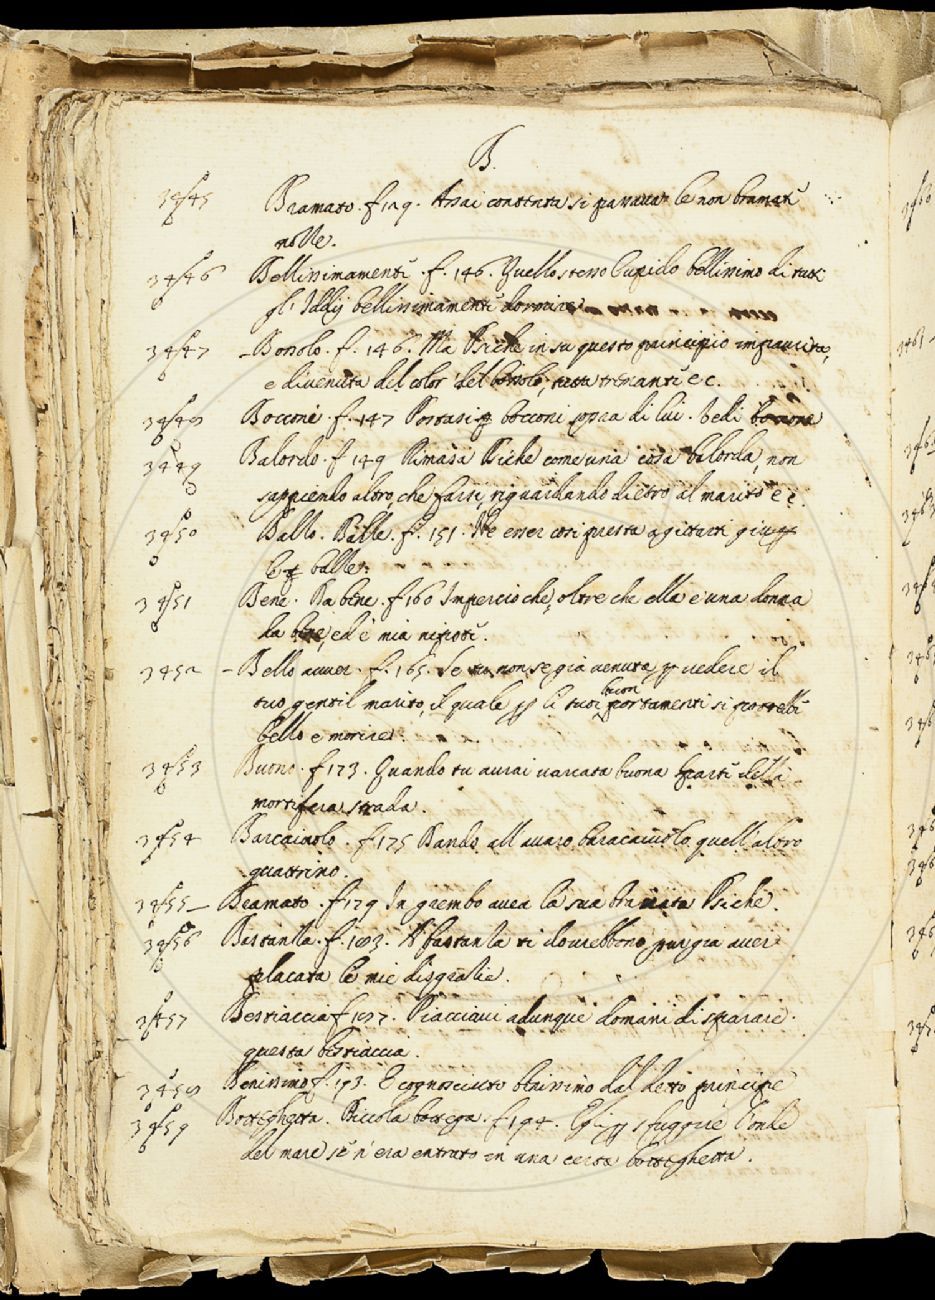 B.
3445 Bramato. f 129. Assai contenta si pareva se non bramati
nolle.
3446 Bellissimamente. f. 146. Quello stesso Cupido bellissimo di tutti
gl' Iddij bellissimamente dormire
3447 Bossolo. f. 146. Ma Psiche in su questo principio impaurita,
e divenuta del color del bossolo, tutta tremante ec.
3448 Boccone. f. 147 Portarsi bocconi sopra di lui. Vedi
3449 Balordo. f 149 Rimasa Psiche come una cosa balorda, non
sappiendo altro, che farsi, riguardando dietro al marito ec.
3450 Ballo. Balle. f. 151. Ne esser così presta a gittarti giu
balle.
3451 Bene. Da bene. f 160 Impercioche, oltre che ella è una donna
da bene, ed è mia nipote.
3452 – Bello avver. f. 165. Se tu non se già venuta p vedere il
tuo gentil marito, il quale p li tuoi buon portamenti si potrebbe
bello e morire
3453 Buono. f 173. Quando tu aurai varcata buona parte della
mortifera strada.
3454 Barcaiuolo. f 175 Dando all avaro barcaiuolo quell'altro
quattrino.
3455 – Beamato. f 179 In grembo avea la sua bramata Psiche.
3456 Bastanza. f. 183. A bastanza ti dovrebbono pur già aver
placata le mie disgrazie.
3457 Bestiaccia f 187. Piacciavi adunque domani di sparare
questa bestiaccia.
3458 Benissimo f. 193. E cognosciuto benissimo dal detto principe
3459 Botteghetta. Piccola bottega. f 194. Egli p sfuggire l'onde
del mare se n'era entrato in una certa botteghetta.